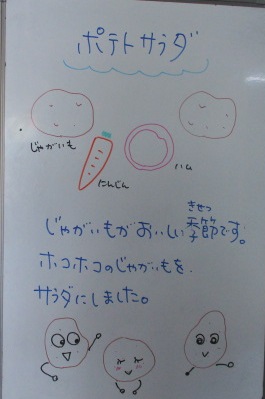 ポテトサラダ
じゃがいも
にんじん
ハム
きせつ
じゃがいもがおいしい季節です。
ホコホコのじゃがいもを
サラダにしました。